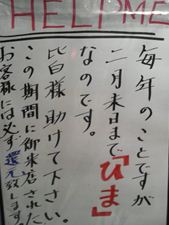 HELP ME
毎年のことですが
二月末日まで「ひま」
なのです。
皆様助けて下さい。
この期間に御来店された
お客様には必ず還元致します。